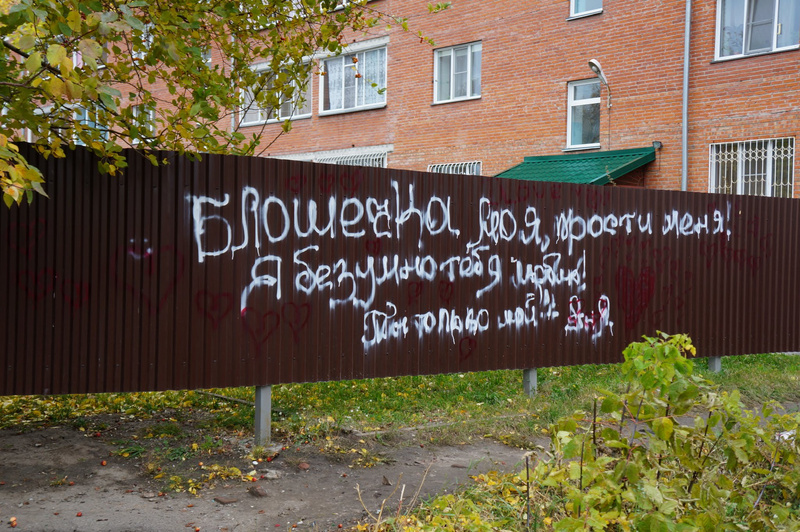 Блошечка моя, прости меня!
Я безумно тебя люблю!
Ты только мой!!!